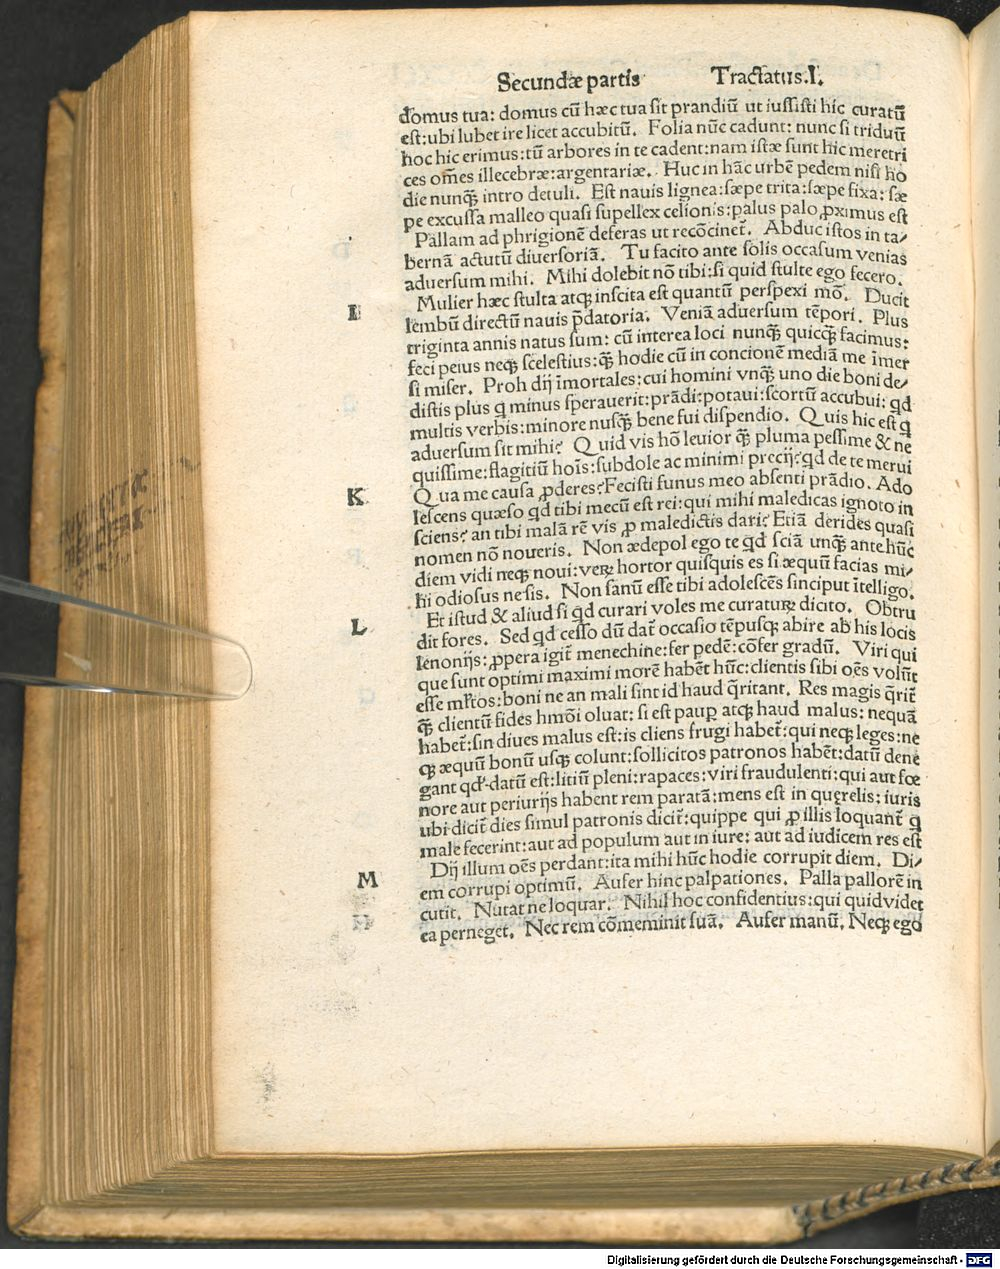 Secundæ partis Tractatus.I.
domus tua: domus cū hæc tua sit prandiū ut iussisti hic curatū
est:ubi lubet ire licet accubitū. Folia nūc cadunt: nunc si triduū
hoc hic erimus:tū arbores in te cadent:nam istæ sunt hic meretri
ces om̄es illecebræ:argentariæ. Huc in hāc urbē pedem nisi ho
die nunqȝ intro detuli. Est nauis lignea:sæpe trita:sæpe fixa: sæ
pe excussa malleo quasi supellex celionis:palus palo ꝓximus est
Pallam ad phrigionē deferas ut recōcinet̄. Abduc istos in ta/
bernā actutū diuersoriā. Tu facito ante solis occasum venias
aduersum mihi. Mihi dolebit nō tibi:si quid stulte ego fecero.
I Mulier hæc stulta atqȝ inscita est quantū perspexi mō. Ducit
lembū directū nauis p̄datoria. Veniā aduersum tēpori. Plus
triginta annis natus sum: cū interea loci nunqȝ quicqȝ facimus:
feci peius neqȝ scelestius:qȝ hodie cū in concionē mediā me īmer
si miser. Proh dij īmortales:cui homini vnqȝ uno die boni de/
distis plus q minus sperauerit:prādi:potaui:scortū accubui: qd
multis verbis:minore nusqȝ bene fui dispendio. Quis hic est q
aduersum sit mihi? Quid vis hō leuior qȝ pluma pessime & ne
quissime:flagitiū hoīs:subdole ac minimi precij?qd de te merui
K Qua me causa ꝓderes?Fecisti funus meo absenti prādio. Ado
lescens quæso qd tibi mecū est rei:qui mihi maledicas ignoto in
sciens? an tibi malā rē vis ꝓ maledictis dari? Etiā derides quasi
nomen nō noueris. Non ædepol ego te qd sciā unqȝ ante hūc
diem vidi neqȝ noui:veꝝ hortor quisquis es si æquū facias mi/
hi odiosus ne sis. Non sanū esse tibi adolescēs sinciput ītelligo.
L Et istud & aliud si qd curari voles me curatuꝝ dicito. Obtru
dit fores. Sed qd cesso dū dat̄ occasio tēpusqȝ abire ab his locis
lenonijs: ꝓpera igit̄ menechine:fer pedē:cōfer gradū. Viri qui
que sunt optimi maximi morē habēt hūc:clientis sibi oēs volūt
esse ml̄tos:boni ne an mali sint id haud q̄ritant. Res magis q̄rit̄
qȝ clientū fides hmōi oluat: si est paup atqȝ haud malus: nequā
habet̄:sin diues malus est:is cliens frugi habet̄:qui neqȝ leges:ne
qȝ æquū bonū usqȝ colunt:sollicitos patronos habēt:datū dene
gant qd datū est:litiū pleni:rapaces:viri fraudulenti:qui aut fœ
nore aut periurijs habent rem paratā:mens est in querelis: iuris
ubi dicit̄ dies simul patronis dicit̄:quippe qui ꝓ illis loquant̄ q
male fecerint:aut ad populum aut in iure: aut ad iudicem res est
M Dij illum oēs perdant:ita mihi hūc hodie corrupit diem. Di/
em corrupi optimū. Aufer hinc palpationes. Palla pallorē in
cutit. Nutat ne loquar. Nihil hoc confidentius:qui quid videt
ea perneget. Nec rem cōmeminit suā. Aufer manū. Neqȝ ego
Digitalisierung gefördert durch die Deutsche Forschungsgemeinschaft - DFG